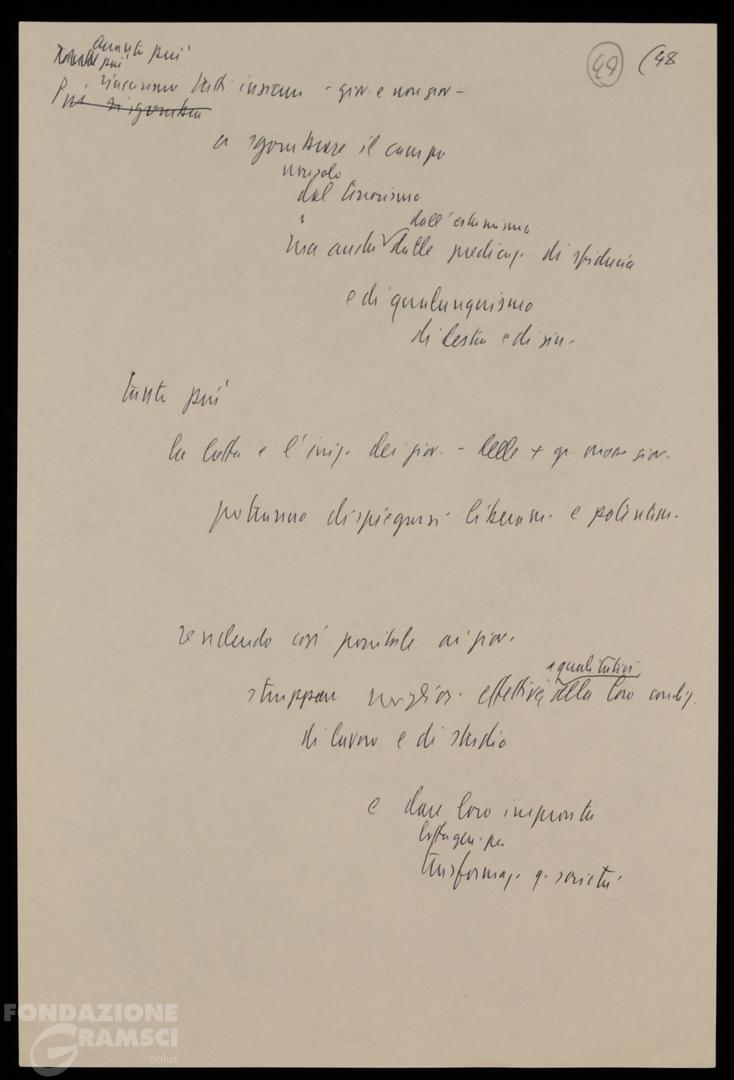 quanto più
49 (48
più
riusciremo tutti insieme - giov. e non giov -
Più si sgombra
a sgombrare il campo
non solo
dal terrorismo
dall'estremismo
ma anche dalle predicaz. di sfiducia
e di qualunquismo
di destra e di sin.
tanto più
la lotta e l'iniz. dei giov. - delle + gr. masse giov.
potranno dispiegarsi liberam. e potentem.
rendendo così possibile ai giov.
e qualitativi
strappare miglior. effettivi alla loro condiz.
di lavoro e di studio
e dare loro impronta
lotta gen. per
trasformaz. q. società.
FONDAZIONE
GRAMSCI
onlus